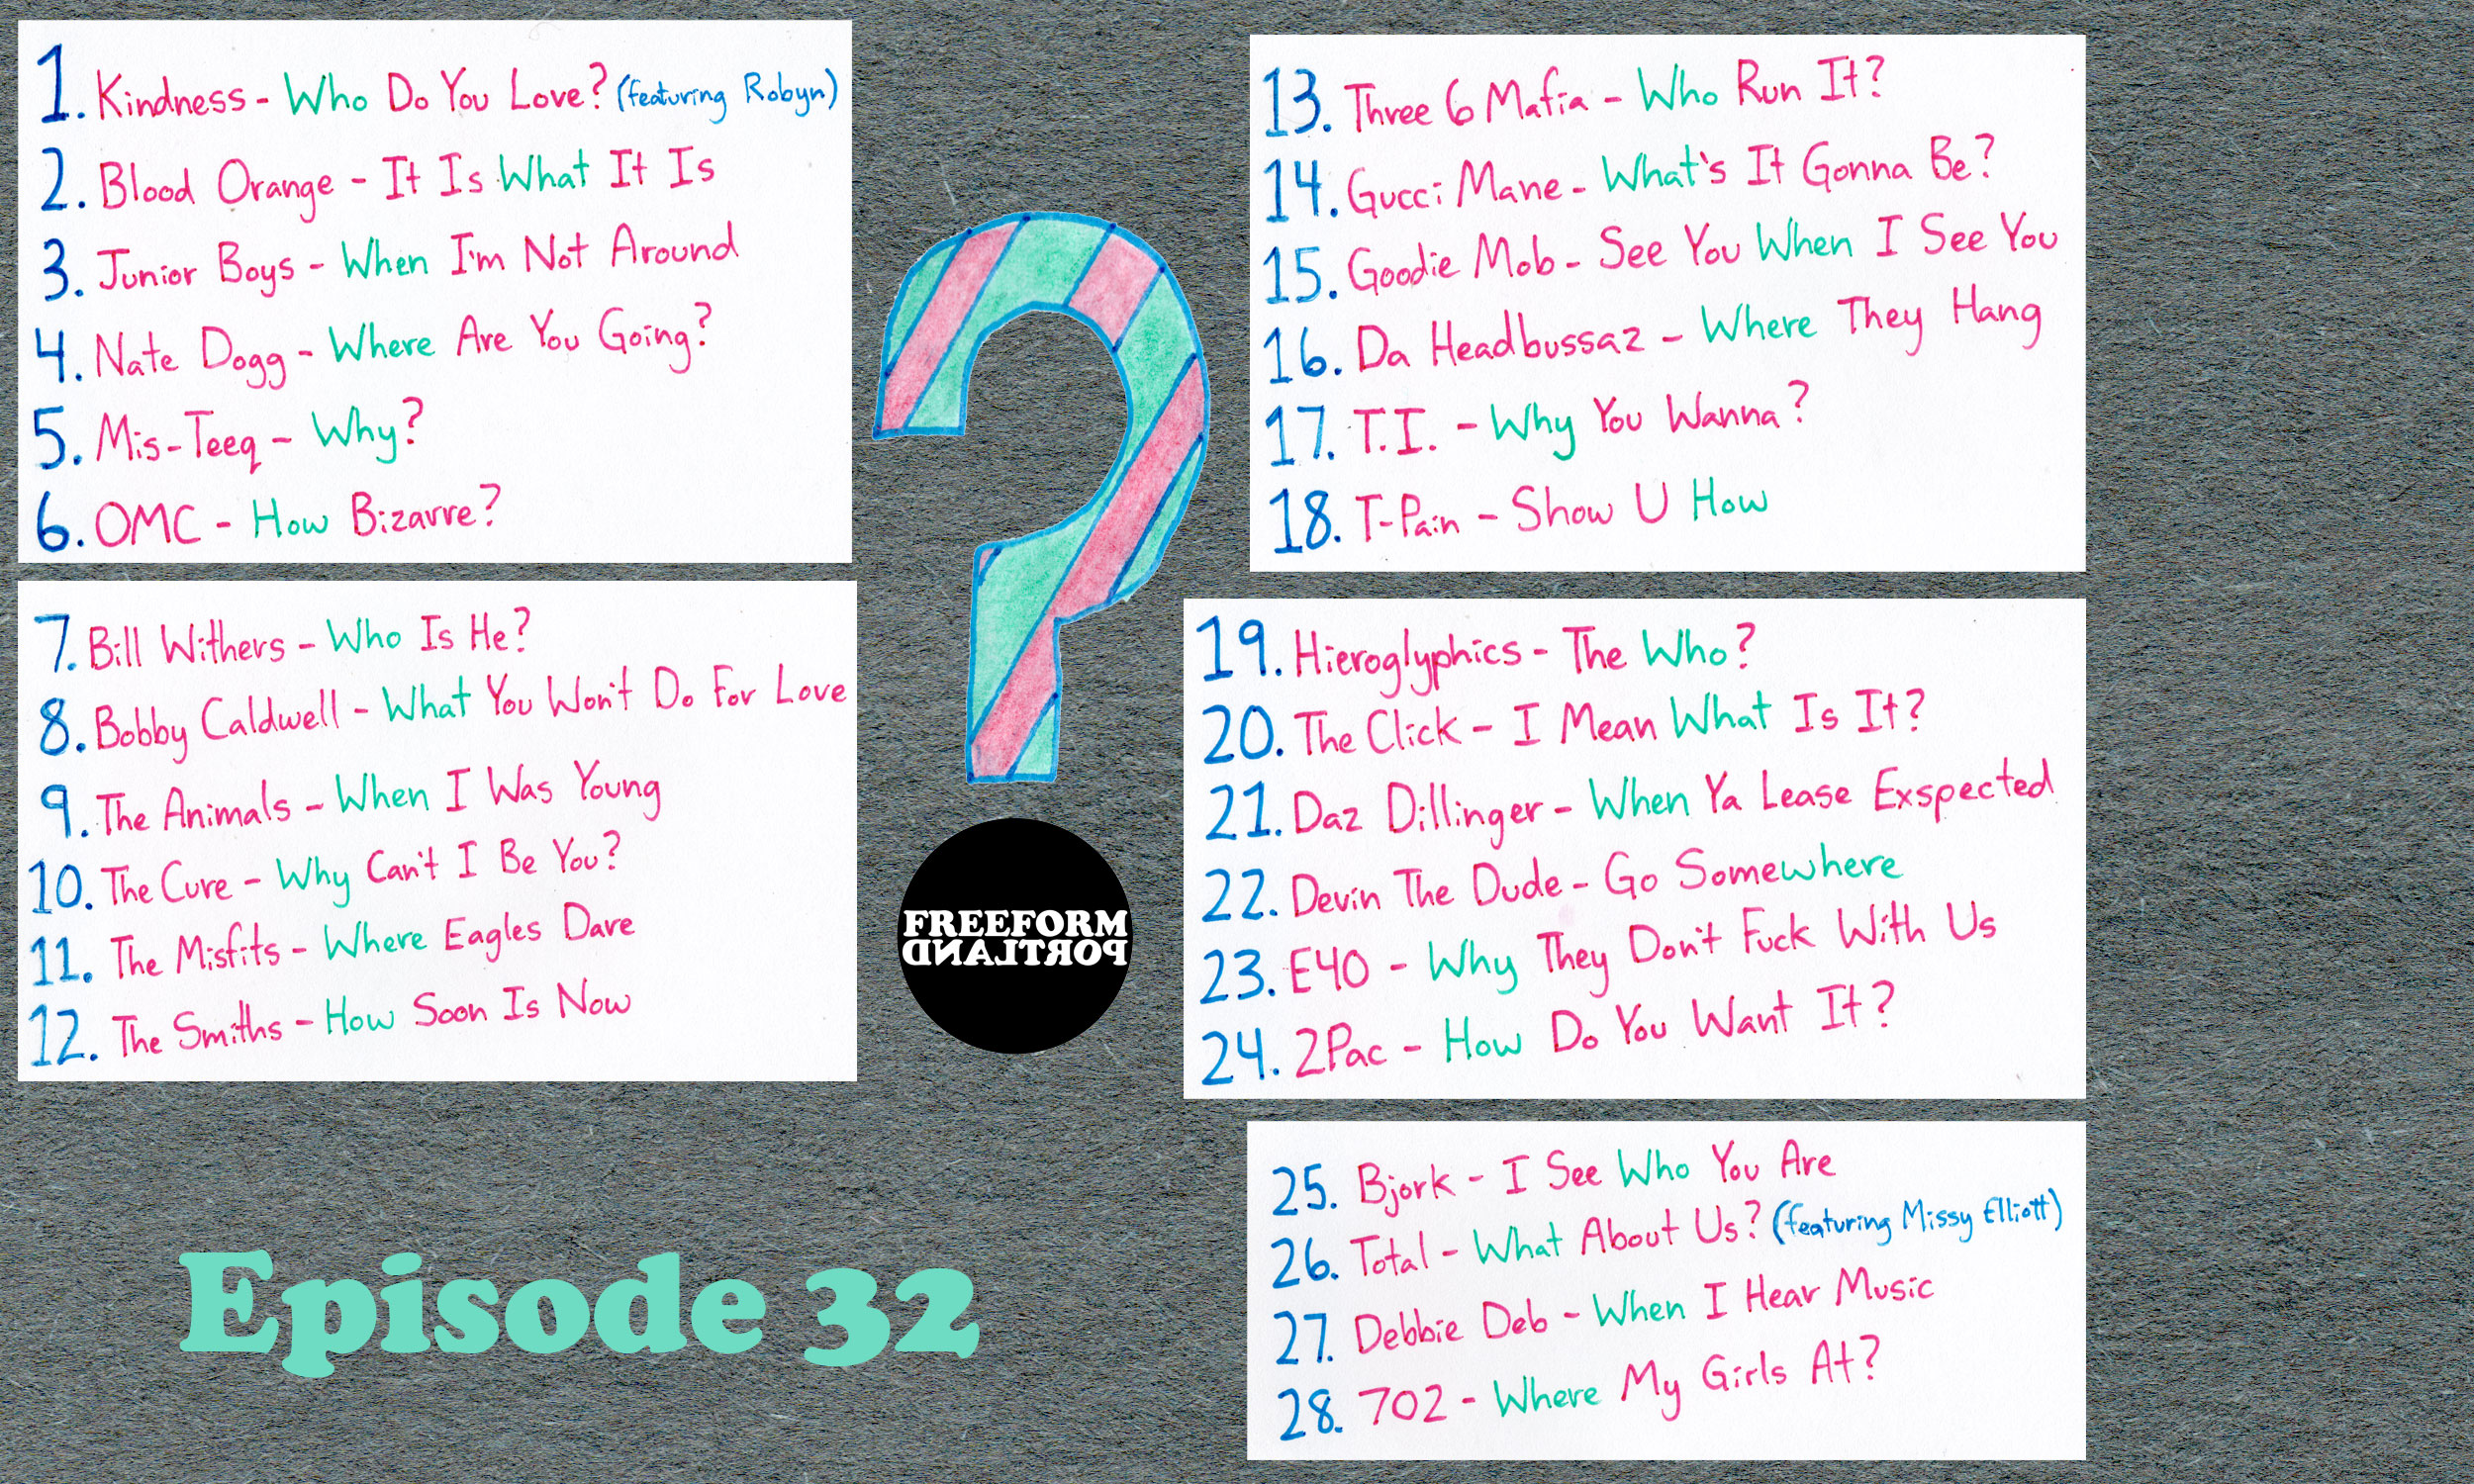 1. Kindness - Who Do You Love? (featuring Robyn)
2. Blood Orange - It Is What It Is
3. Junior Boys - When I'm Not Around
4. Nate Dogg - Where Are You Going?
5. Mis-Teeq - Why?
6. OMC - How Bizarre?
7. Bill Withers - Who Is He?
8. Bobby Caldwell - What You Won't Do For Love
9. The Animals - When I Was Young
10. The Cure - Why Can't I Be You?
11. The Misfits - Where Eagles Dare
12. The Smiths - How Soon Is Now
?
FREEFORM
PORTLAND
13. Three 6 Mafia - Who Run It?
14. Gucci Mane - What's It Gonna Be?
15. Goodie Mob - See You When I See You
16. Da Headbussaz - Where They Hang
17. T.I. - Why You Wanna?
18. T-Pain - Show U How
19. Hieroglyphics - The Who?
20. The Click - I Mean What Is It?
21. Daz Dillinger - When Ya Lease Exspected
22. Devin The Dude - Go Somewhere
23. E40 - Why They Don't Fuck With Us
24. 2Pac - How Do You Want It?
25. Bjork - I See Who You Are
26. Total - What About Us? (featuring Missy Elliott)
27. Debbie Deb - When I Hear Music
28. 702 - Where My Girls At?
Episode 32